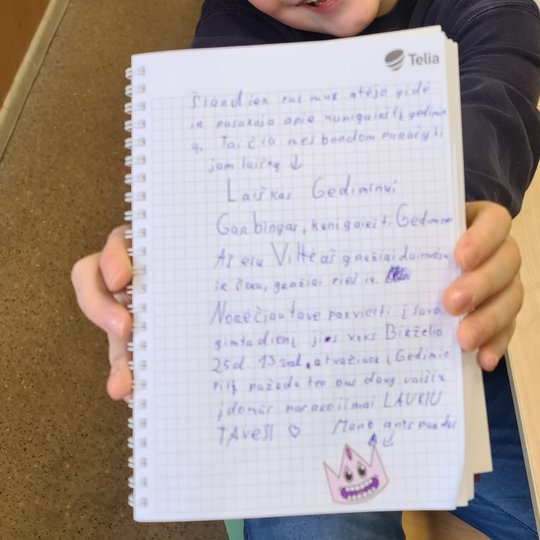 Telia
Šiandien pas mus atėjo gidė
ir pasakojo apie kunigaikštį gedimin
ą. Tai čia mes bandom parašyti
jam laišką ↓
Laiškas Gediminui
Garbingas, kunigaikšti Gedimin
Aš esu Viltė aš gražiai dainuoju
ir šoku, gražiai piešiu
Norėčiau tave pakviesti į savo
gimtadienį jis vyks Birželio
25d. 13 val. atvažiuok į Gedimino
pilį pažadu ten bus daug vaišių
įdomūs pasakojimai LAUKIU
TAVĘS! ♡ Mano antspaudas